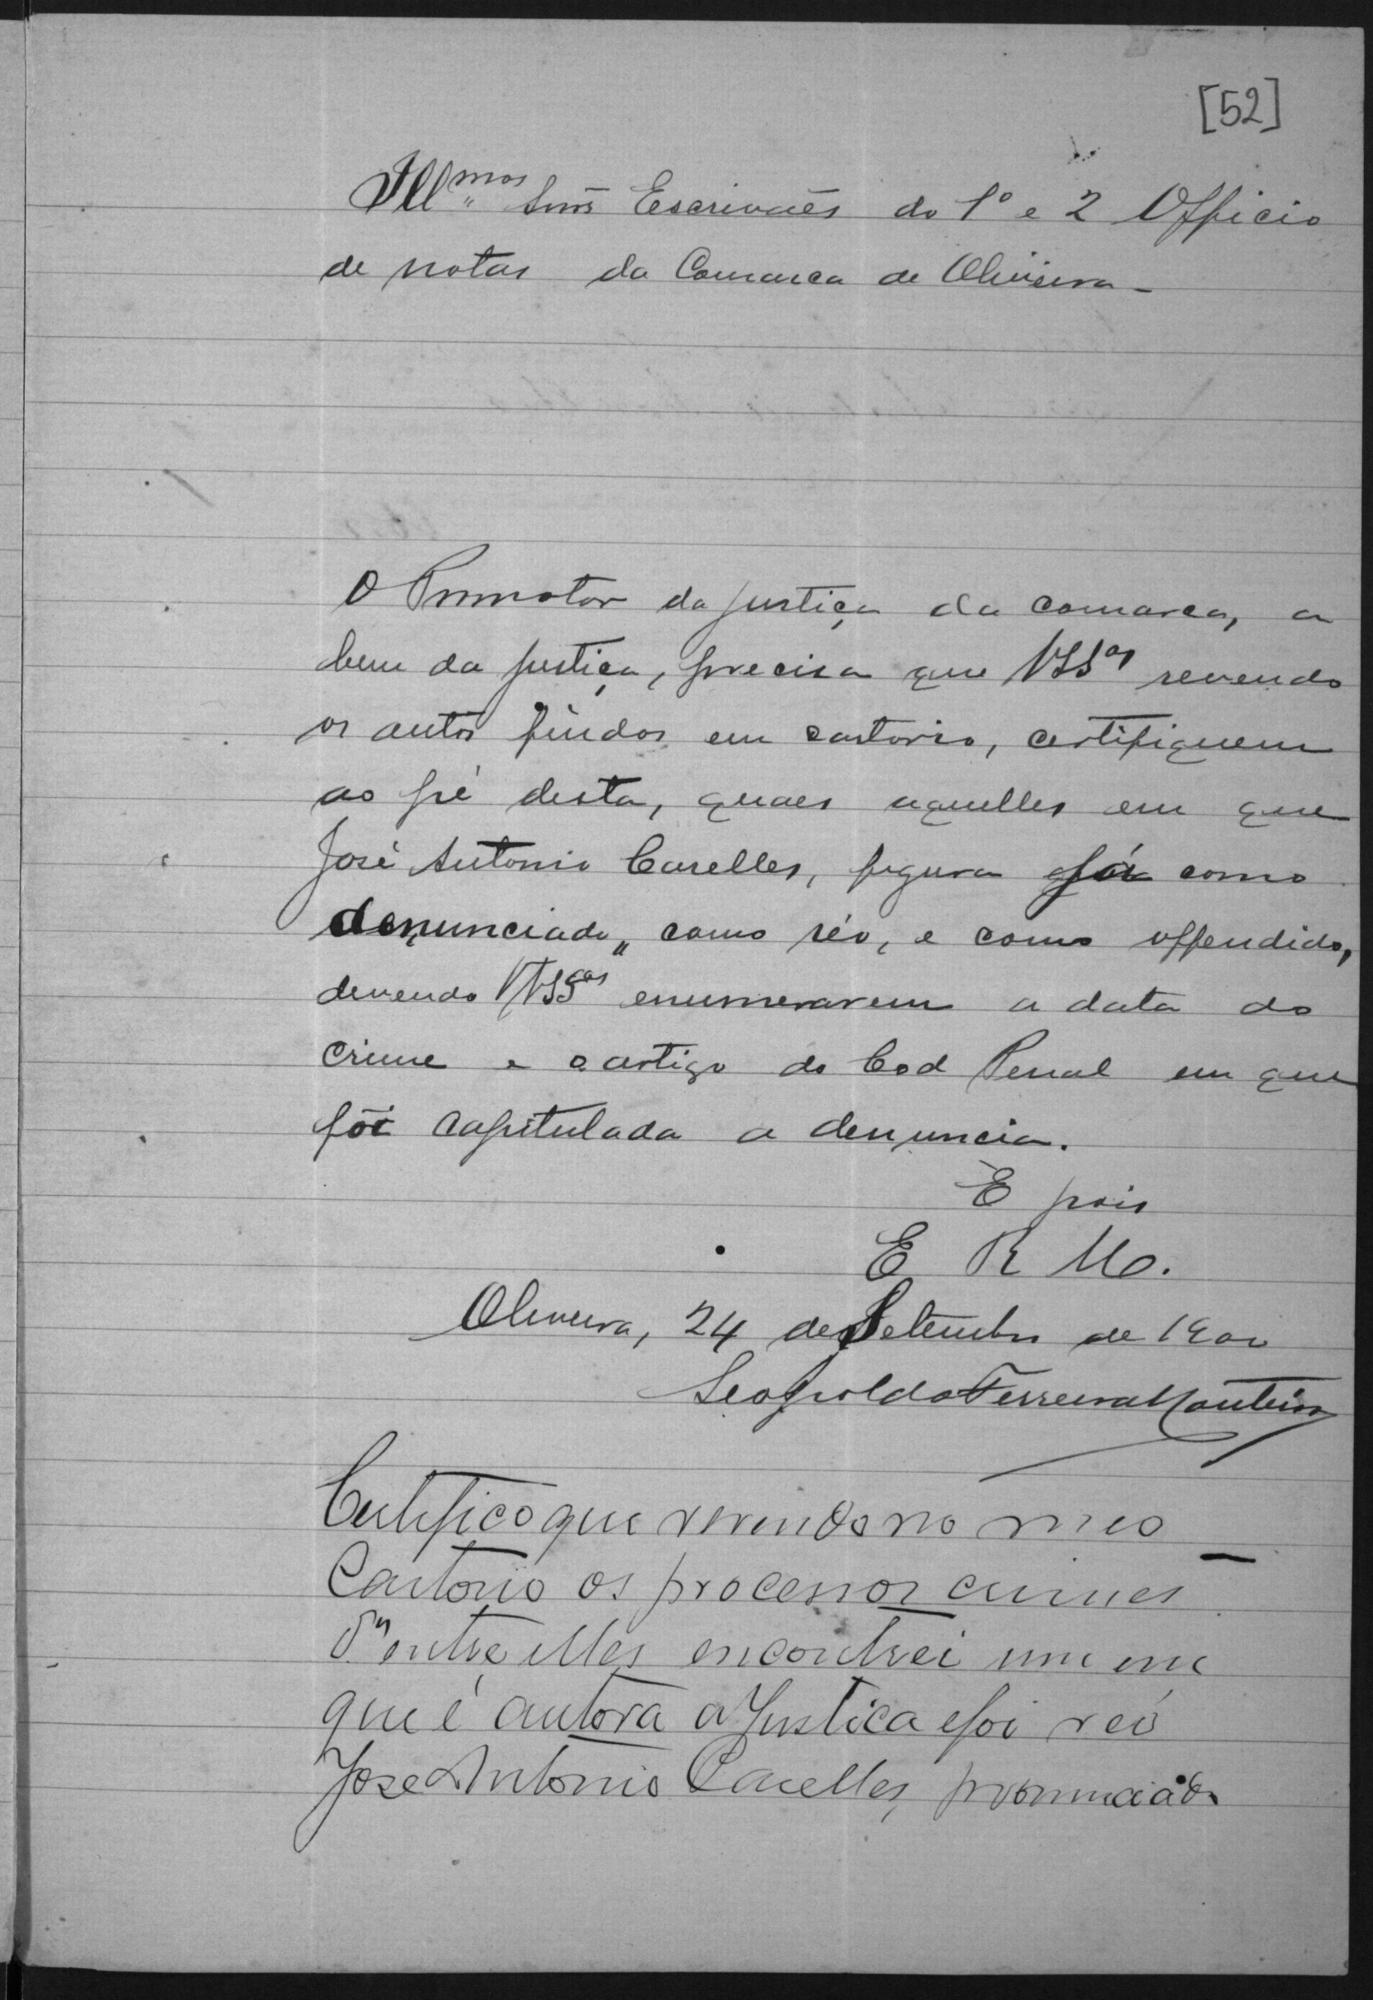 [52]
Ill.mos Snrs Escrivães do 1º e 2 Officio
de notas da Comarca de Oliveira -
O Promotor da justiça da comarca, a
bem da justiça, precisa que VSSas revendo
os autos findos em cartorio, certifiquem
ao pé desta, quaes aquelles em que
José Antonio Carelles, figura já como
denunciado, como réo, e como offendido,
devendo VVSSas enumerarem a data do
crime e o artigo do Cod Penal em que
foi capitulada a denuncia.
E pois
E R M.
Oliveira, 24 de Setembro de 1900
Leopoldo Ferreira Monteiro
Certifico que revendo no meo
Cartorio os processos crimes
d'entre elles encontrei um em
que é autora a Justica e foi reo
Jose Antonio Carelles, pronunciado